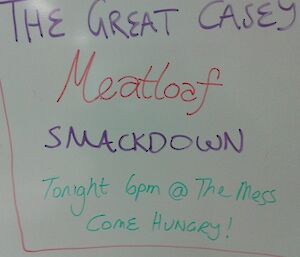 THE GREAT CASEY
Meatloaf
SMACKDOWN
Tonight 6pm @ The Mess
COME HUNGRY!